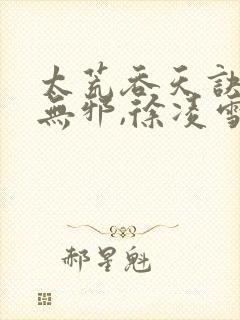 太荒吞天訣
無邪,徐凌雪
郝星魁